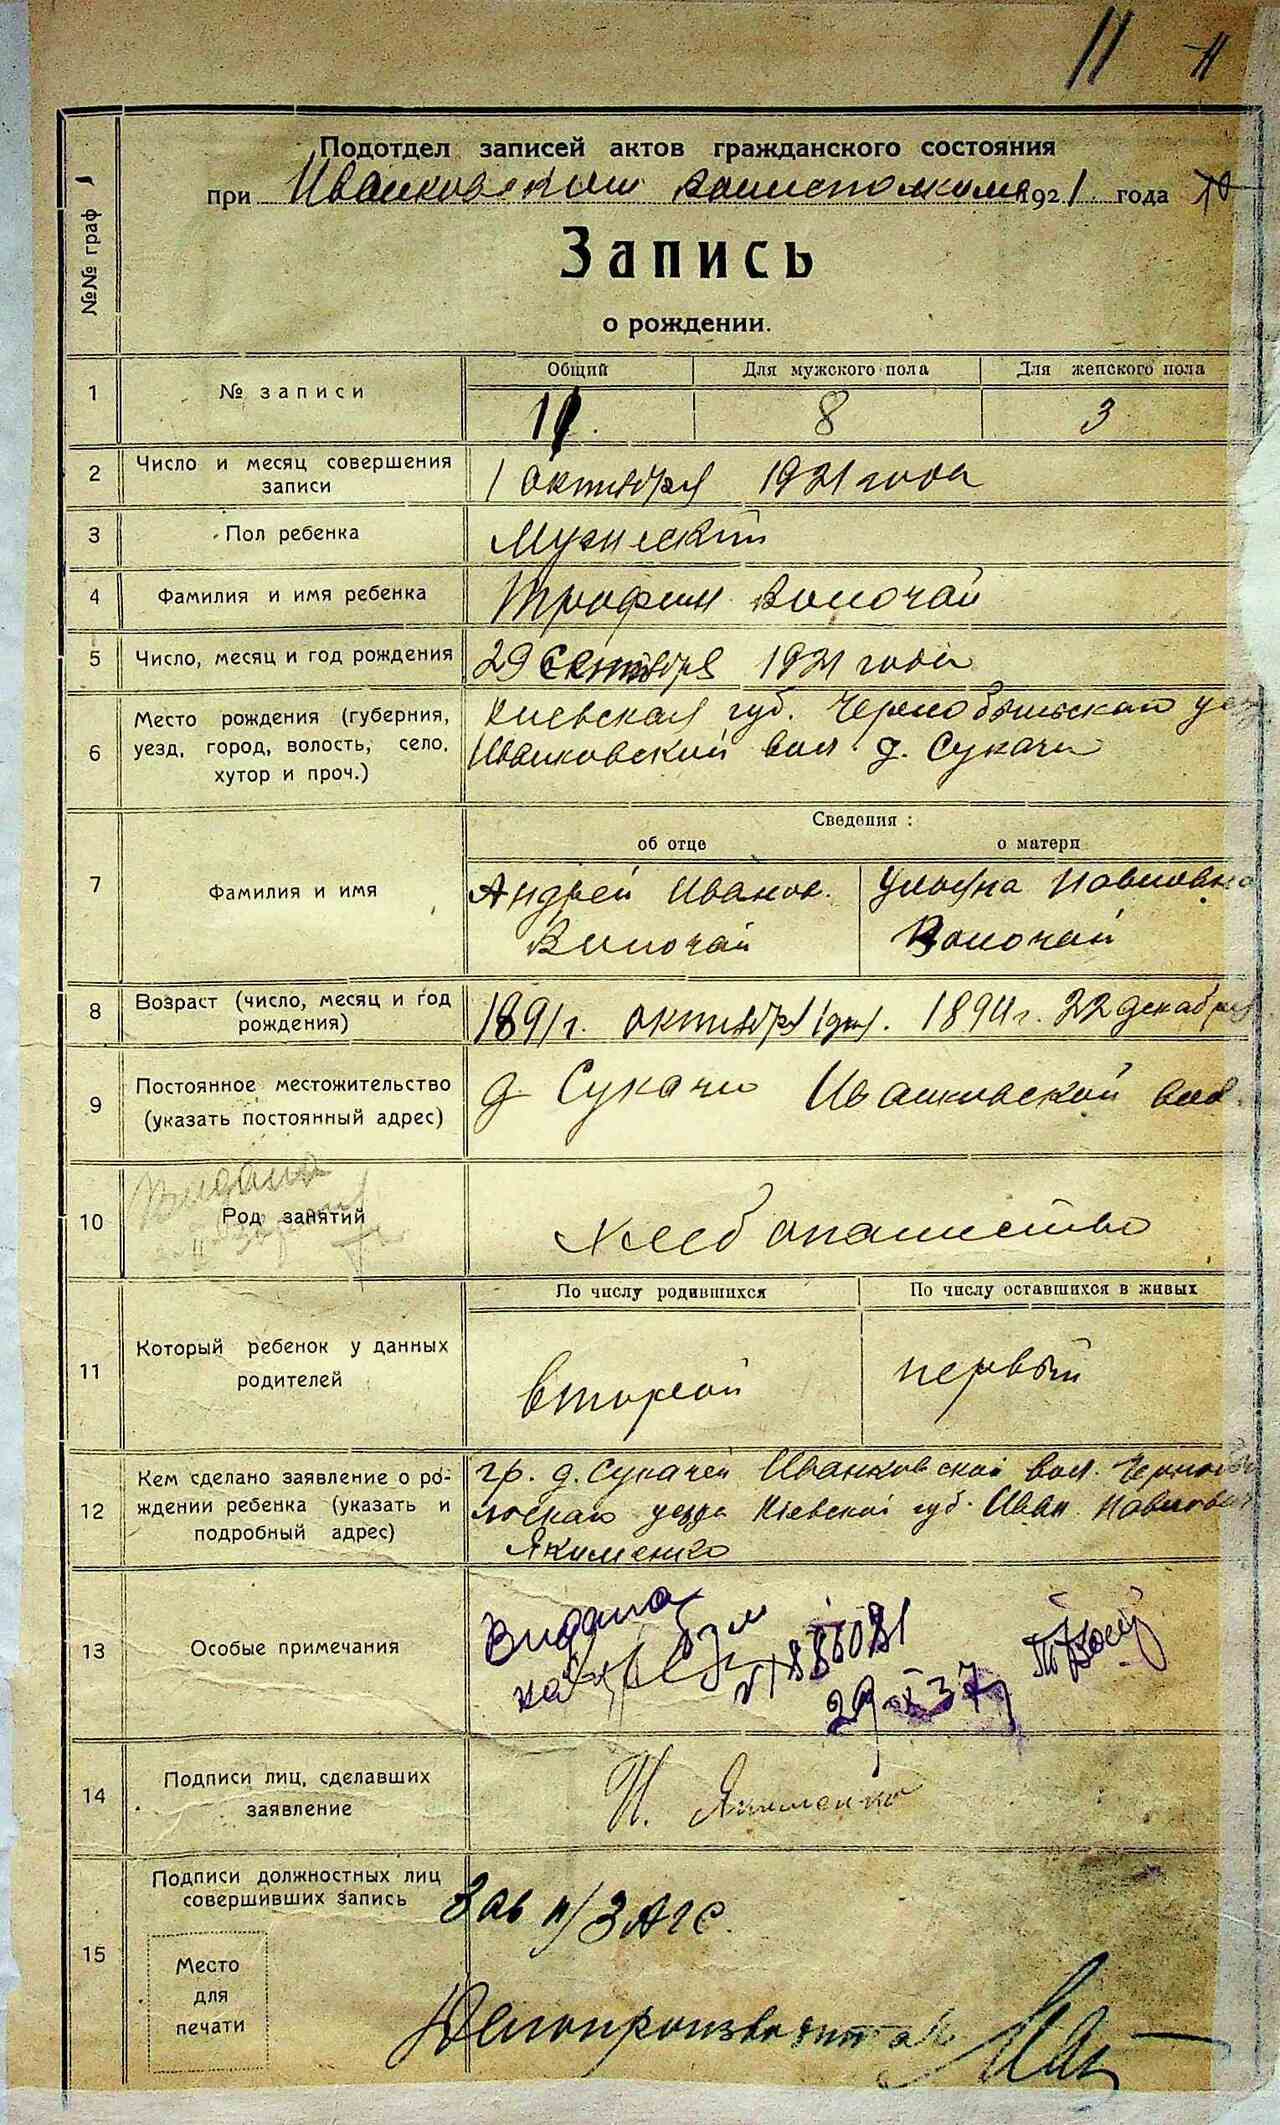 11 11
Подотдел записей актов гражданского состояния
при Иванковском волисполкоме 1921 года 10
№№ граф
Запись
о рождении.
1 № записи Общий Для мужского пола Для женского пола
11. 8 3
2 Число и месяц совершения записи 1 октября 1921 года
3 Пол ребенка Мужеский
4 Фамилия и имя ребенка Трофим Волочай
5 Число, месяц и год рождения 29 Сентября 1921 года
6 Место рождения (губерния, Киевская губ. Чернобыльского уезд
уезд, город, волость, село, Иванковской вол д. Сукачи
хутор и проч.)
Сведения :
об отце о матери
7 Фамилия и имя Андрей Иванов. Ульяна Павловна
Волочай Волочай
8 Возраст (число, месяц и год рождения) 1891 г. октября 1 дня. 1894 г. 22 декабря
9 Постоянное местожительство д Сукачи Иванковской вол.
(указать постоянный адрес)
Видана
10 Род занятий Хлебопашество
По числу родившихся По числу оставшихся в живых
11 Который ребенок у данных родителей второй первый
12 Кем сделано заявление о ро- гр. д. Сукачей Иванковской вол. Чернобы
ждении ребенка (указать и льского уезда Киевской губ. Иван Павлович
подробный адрес) Якименко
13 Особые примечания Видана
29 X 37
14 Подписи лиц, сделавших заявление И. Якименко
15 Подписи должностных лиц
совершивших запись Зав п/ЗАГС.
Место
для
печати Делопроизводитель